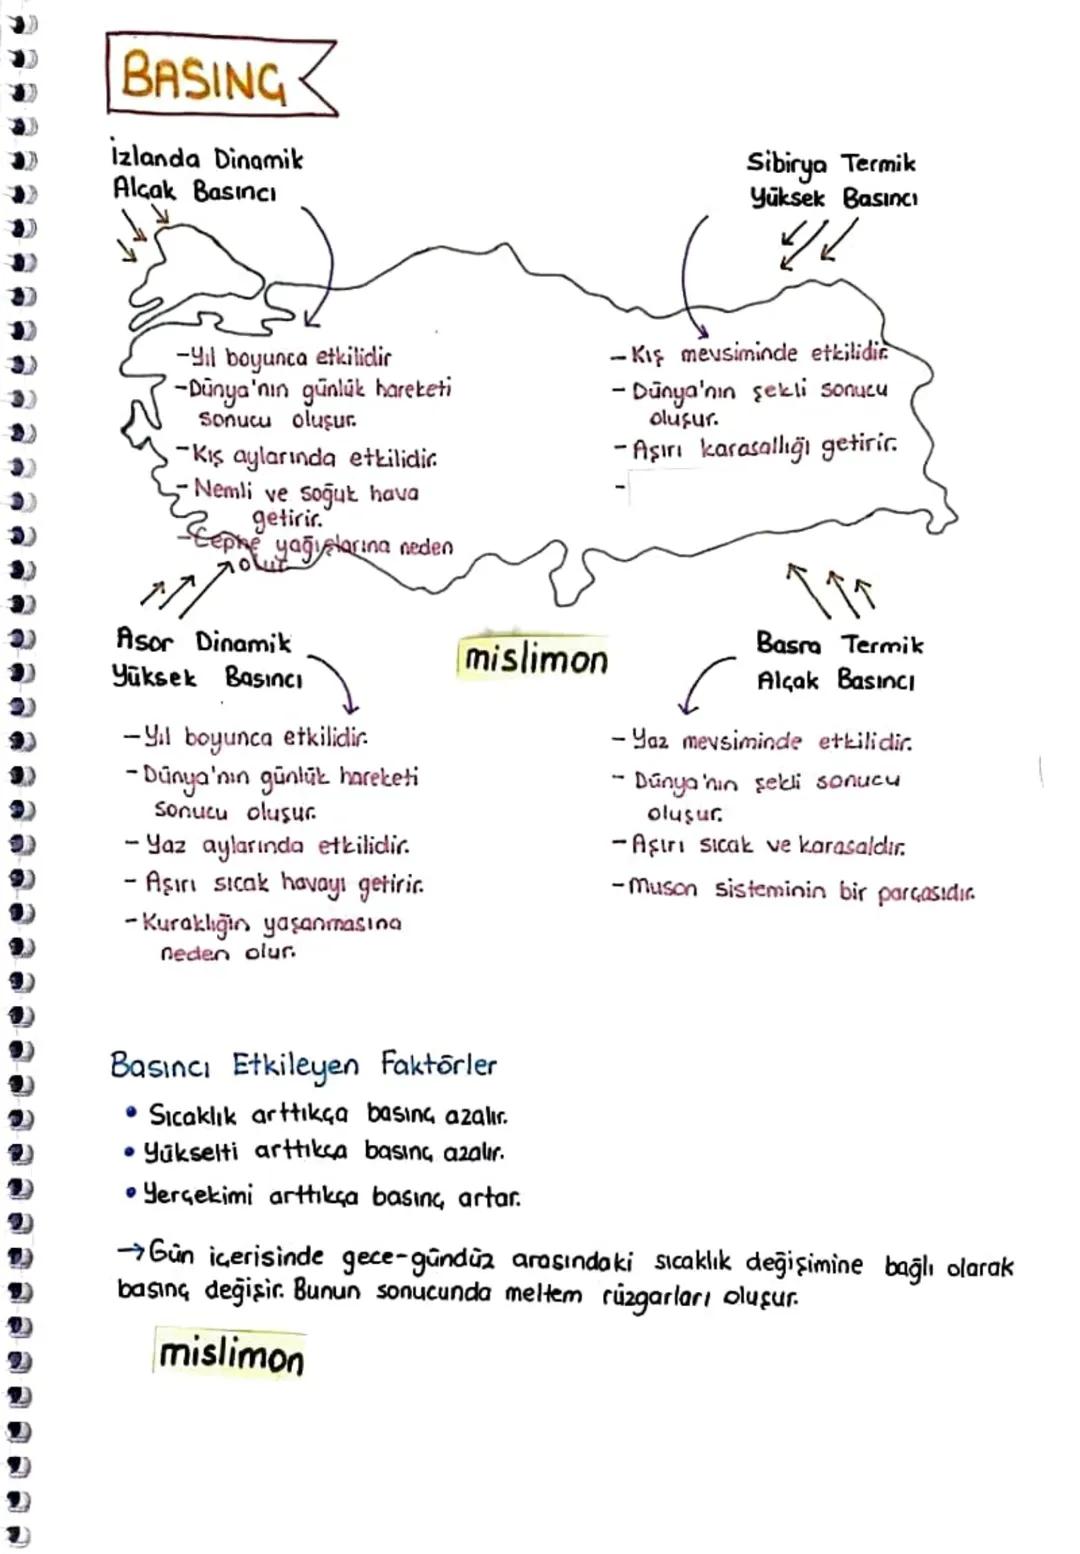 BASINÇ
İzlanda Dinamik
Alçak Basıncı
Sibirya Termik
Yüksek Basıncı
-Yıl boyunca etkilidir
-Dünya'nın günlük hareketi
sonucu oluşur.
-Kış aylarında etkilidir.
-Nemli ve soğuk hava
getirir.
-Cephe yağışlarına neden
olur
- Kış mevsiminde etkilidir.
- Dünya'nın şekli sonucu
oluşur.
- Aşırı karasallığı getirir.
-
Asor Dinamik
Yüksek Basıncı
mislimon
Basra Termik
Alçak Basıncı
- Yıl boyunca etkilidir.
- Dünya'nın günlük hareketi
sonucu oluşur.
- Yaz aylarında etkilidir.
- Aşırı sıcak havayı getirir.
- Kuraklığın yaşanmasına
neden olur.
- Yaz mevsiminde etkilidir.
- Dünya'nın şekli sonucu
oluşur.
- Aşırı sıcak ve karasaldır.
- Muson sisteminin bir parçasıdır.
Basıncı Etkileyen Faktörler
• Sıcaklık arttıkça basınç azalır.
• Yükselti arttıkça basınç azalır.
• Yerçekimi arttıkça basınç artar.
→ Gün içerisinde gece-gündüz arasındaki sıcaklık değişimine bağlı olarak
basınç değişir. Bunun sonucunda meltem rüzgarları oluşur.
mislimon